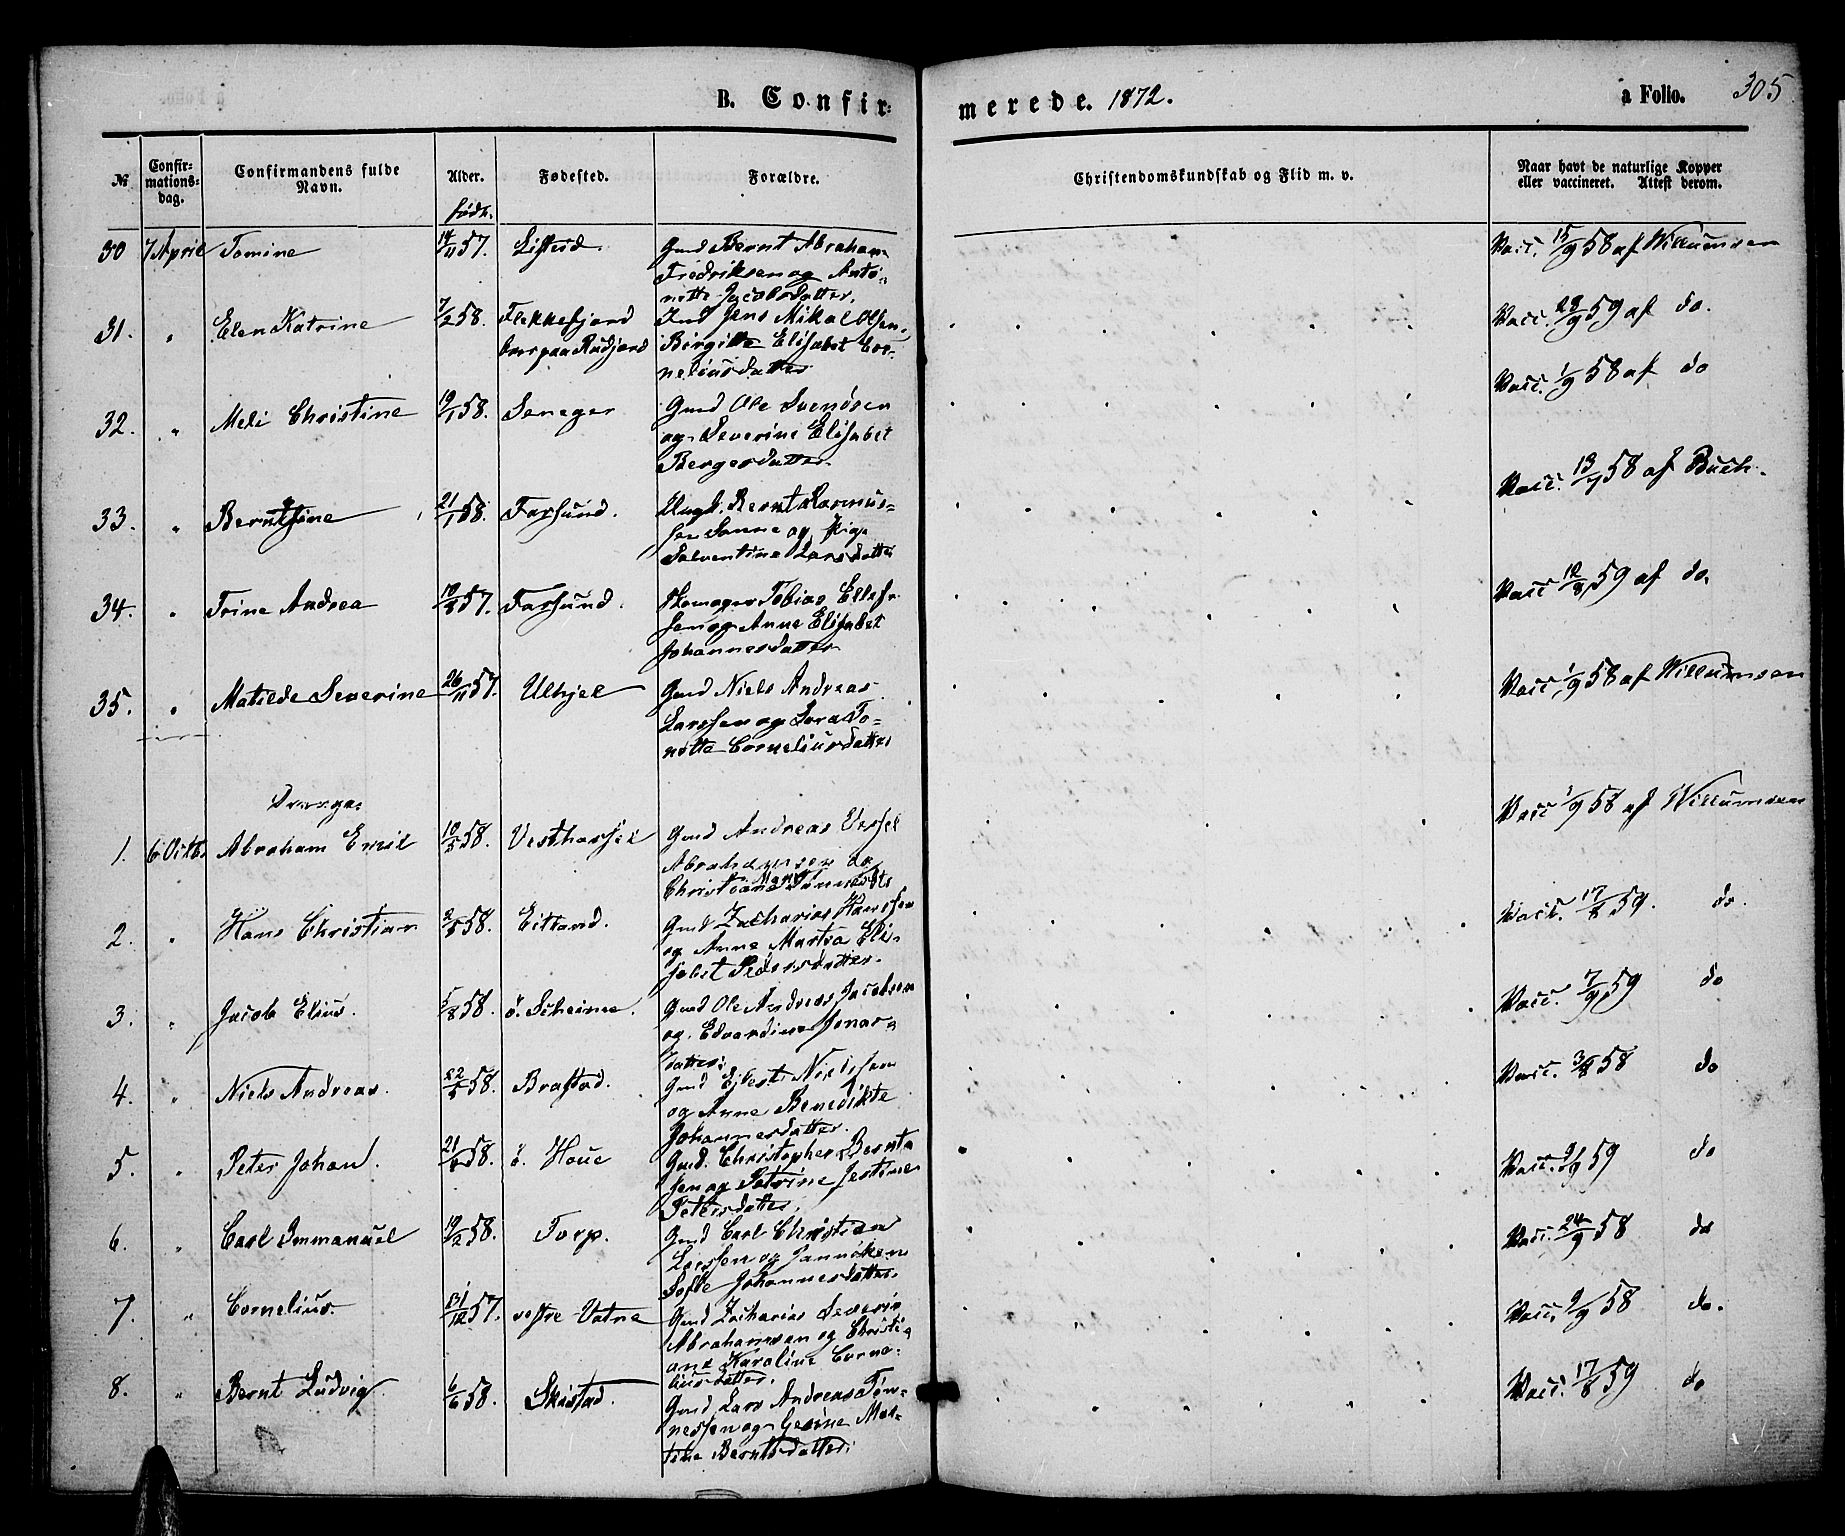 B. Confir-
merede. 1872.
a Folio. 305
№ Confir-mations-dag. Confirmandens fulde Navn. Alder. Fødested. Forældre. Christendomskundskab og Flid m. v. Naar havt de naturlige Kopper eller vaccineret. Attest derom.
født.
30 7 April Tomine 14/11 57. Listeid Gmd Bernt Abraham Vacc. 15/9 58 af Willumsen
Fredriksen og Anto-
nette Jacobsdatter.
31. " Elen Katrine 7/2 58. Flekkefjord Ind Jens Mikal Olsen, Vacc. 29/9 59 af do.
boer paa Rudjord Birgitte Elisabet Cor-
neliusdatter
32. " Meli Christine 19/1 58. Seneger Gmd Ole Svendsen Vacc. 1/9 58 af do
og Severine Elisabet
Bergersdatter
33. " Berntsine 21/1 58. Farsund. Ungk. Bernt Rasmus- Vacc. 13/7 58 af Buch.
sen Sanne og Pige
Salventine Larsdatter
34. " Trine Andrea 10/8 57. Farsund. Skomager Tobias Ellef- Vacc 12/8 59 af do.
sen og Anne Elisabet
Johannesdatter
35. " Matilde Severine 26/11 57. Ulhjel Gmd Niels Andreas Vacc 1/9 58 af Willumsen
Larssen og Sara To-
nette Corneliusdatter
Drenge.
1. 6 Octb. Abraham Emil 10/5 58. Vesthassel Gmd Andreas Vessel Vacc 1/9 58 af Willumsen
Abrahamsen og
Christiane Marie Tønnesdtr
2. " Hans Christian 2/5 58. Eitland. Gmd Zacharias Hanssen Vacc. 17/8 59. do.
og Anne Marta Eli-
sabet Pedersdatter.
3. " Jacob Elius. 5/8 58. ö. Skeime. Gmd Ole Andreas Jacobsen Vacc. 7/9 59 do
og Edvardine Jonas-
datter.
4. " Niels Andreas. 22/5 58. Brastad. Gmd Ejlert Nielssen Vacc. 3/8 58 do
og Anne Benedikte
Johannesdatter.
5. " Peter Johan. ö. Houe Gmd. Christopher Bernt- Vacc. 9/9 59 do
sen og Petrine Jestine
Petersdatter.
6. " Carl Immanuel 19/2 58. Torp. Gmd Carl Christian Vacc. 24/9 58 do
Larssen og Jannöken
Sofie Johannesdatter.
7. " Cornelius. 31/12 57. vestre Vatne Gmd Zacharias Severin Vacc. 9/9 58 do.
Abrahamsen og Christi-
ane Karoline Corne-
liusdatter.
8. " Bernt Ludvig. 6/6 58. Skistad. Gmd Lars Andreas Tøn- Vacc. 17/8 59 do
nessen og Gesine Mar-
tine Berntsdatter.